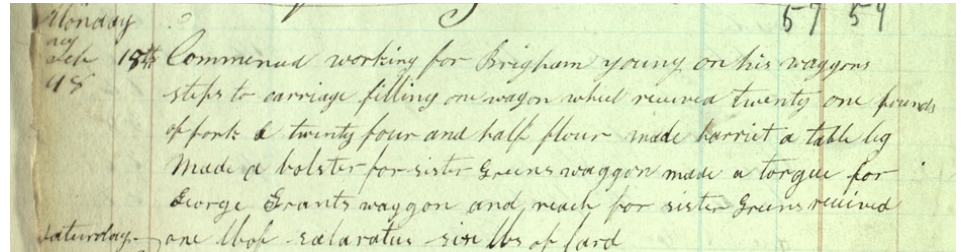 57 54
Monday
Feb 18th Commencd working for Brigham young on his waggons
48 steps to carriage filling one wagon wheel received twenty one pounds
of pork & twenty four and half flour made harriet a table leg
Made a bolster for sister Greens waggon made a torgue for
George Grants waggon and reach for sister Greens received
Saturday one lb of salaratus six lbs of lard